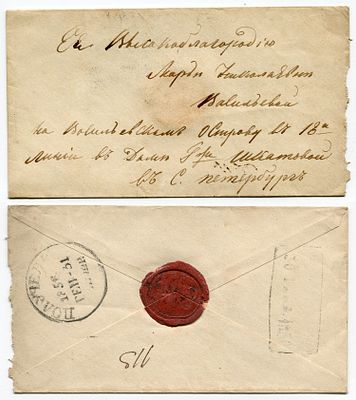 Ея Высокоблагородію
Марьи Николаевны
Васильевой
на Васильевскомъ Острову въ 13й
линіи въ Доми Г-жи
въ С. Петербургъ
ПОЛУЧЕНО
185
ГЕН-31
115